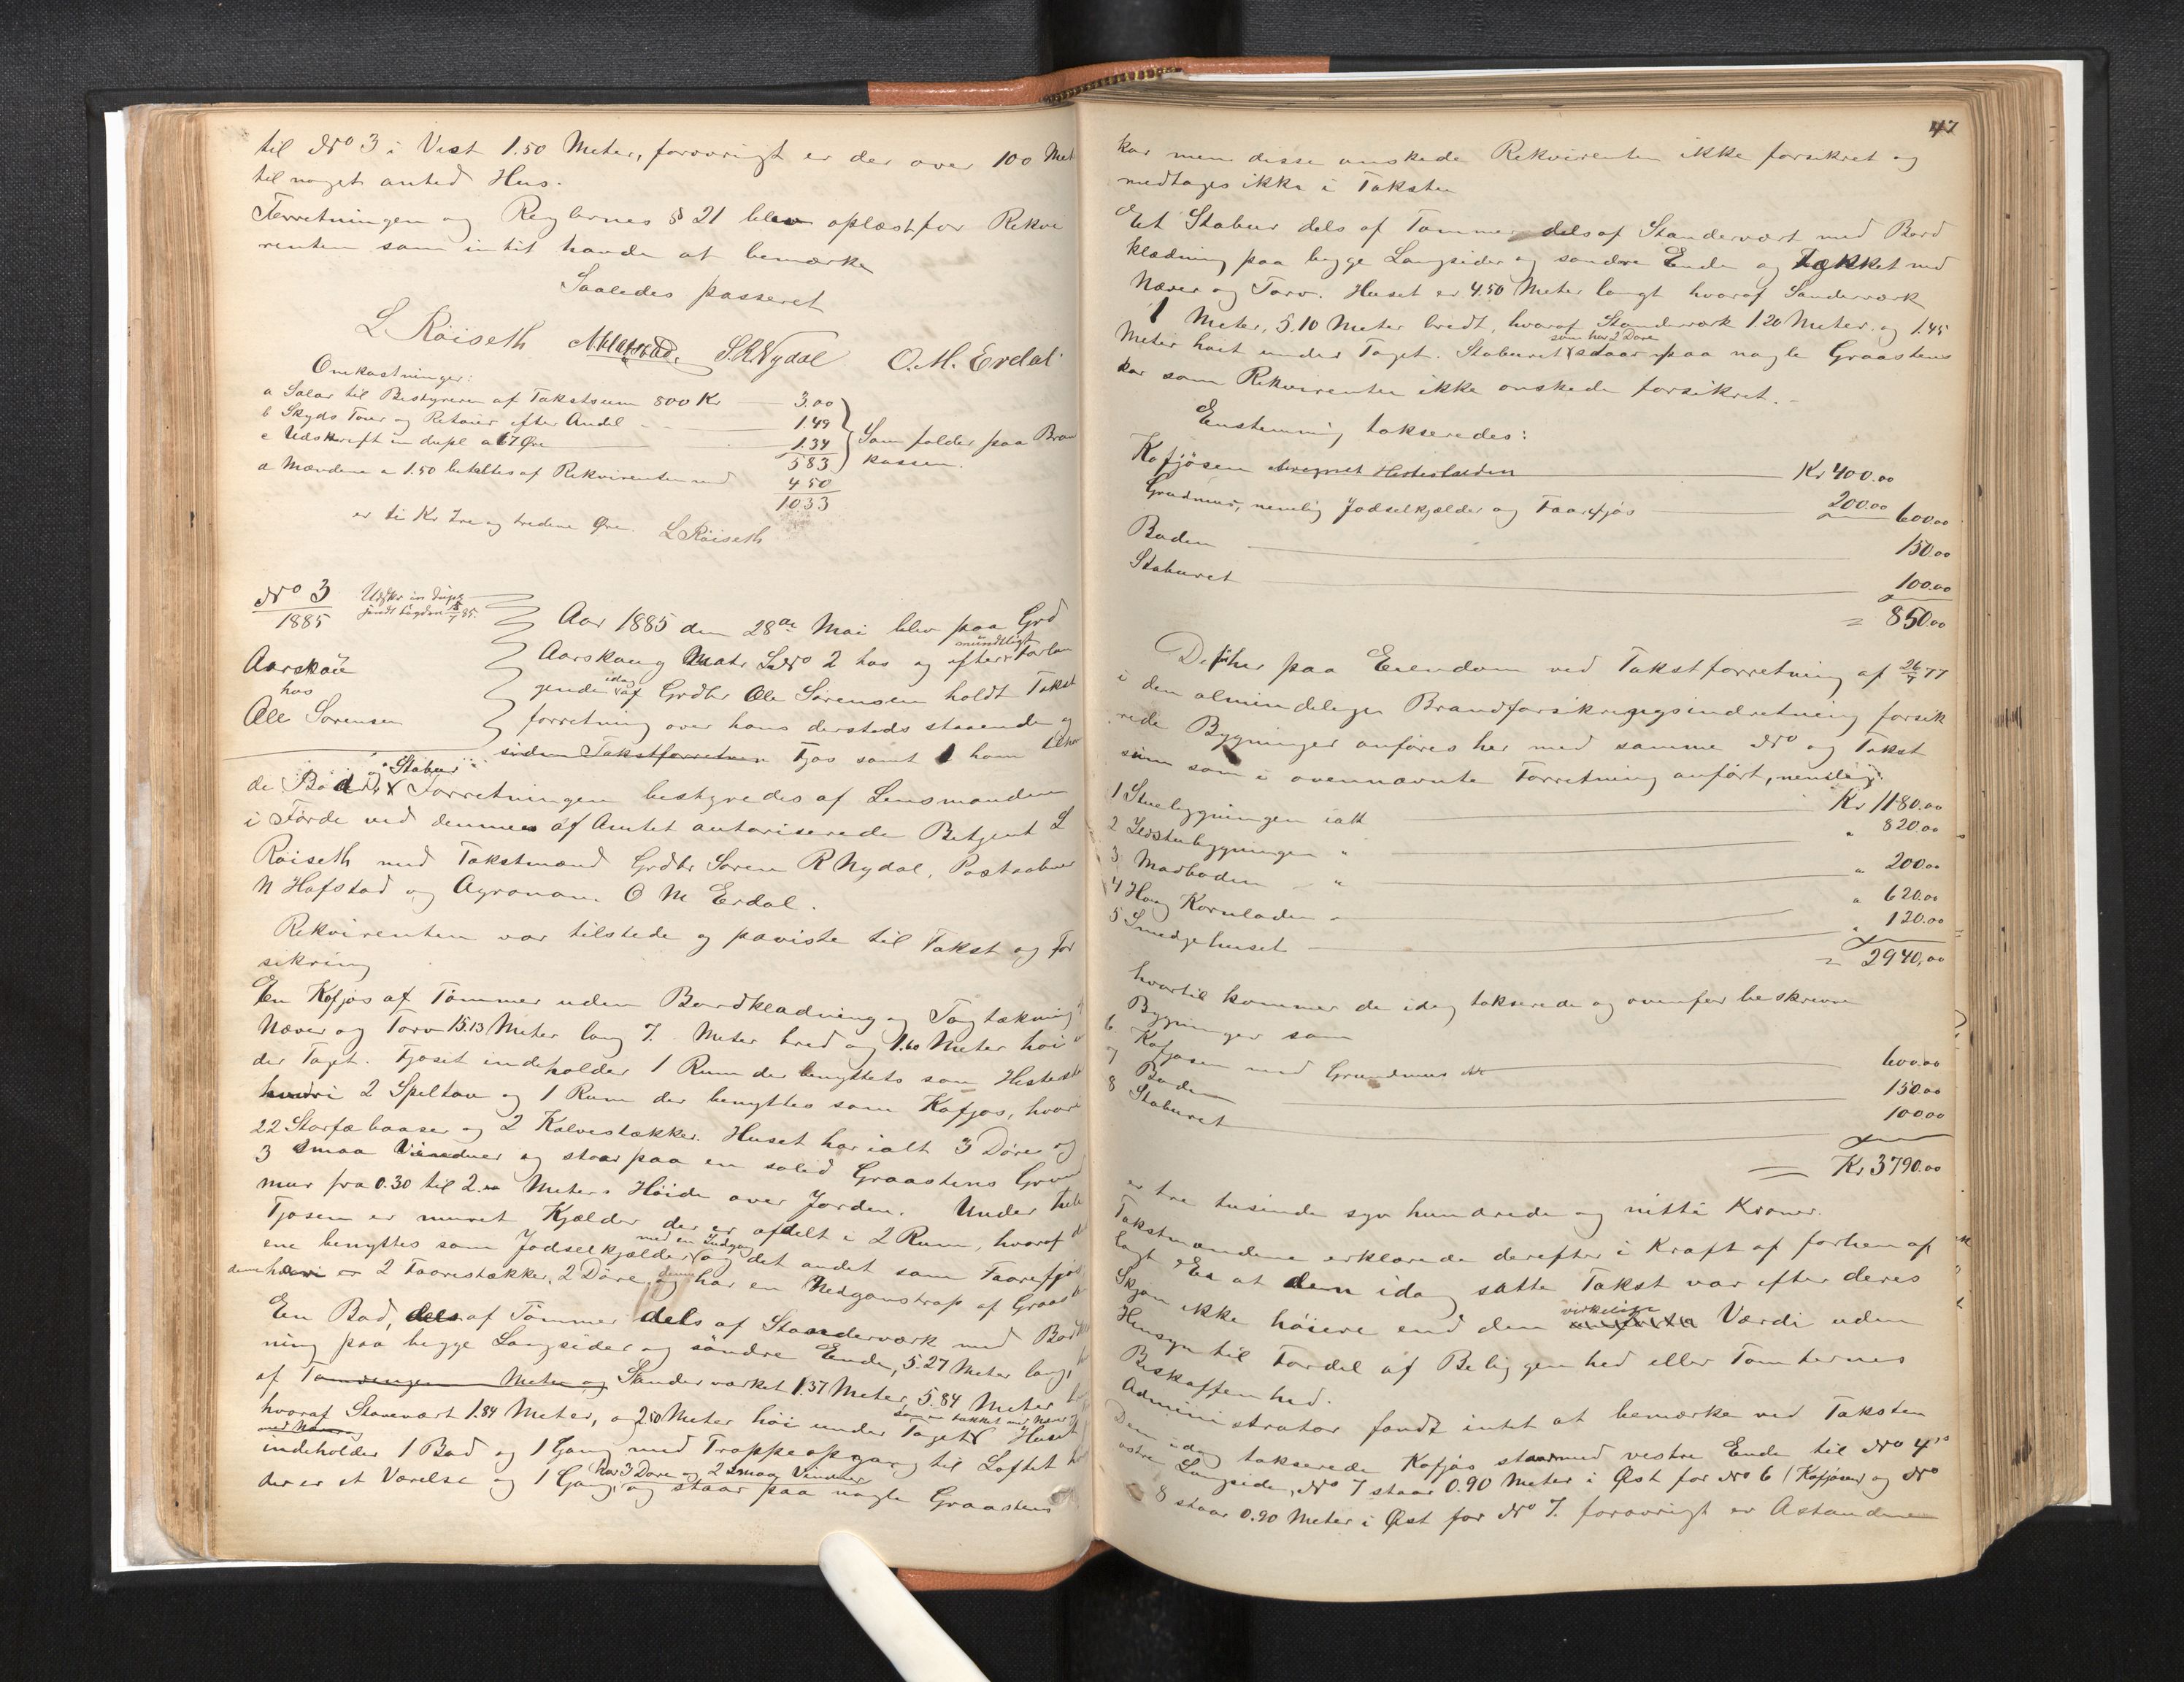 til No 3 i Vest 1.50 Meter, forøvrigt er der over 100 Met
til noget andet Hus.
Forretningen og Reglernes § 21 blev oplæst for Rekvi
renten som intit havde at bemærke
Saaledes passeret
L Röiseth S.R. Nydal O.M. Erdal
Omkostninger:
a Salær til Bestyreren af Takstsum 800 Kr 3.00
b Skyds Tour og Retour efter Andel 1.49
c Udskrift in dupl a 67 Øre 1.34
Som falder paa Bran
583 kassen.
d Mændene a 1.50 betaltes af Rekvirenten med 4 50
1033
er ti Kr tre og tredive Øre. L Röiseth
No 3
1885
Udskr in dupl
Aar 1885 den 28de Mai blev paa Grd
Aarskoug Matr LNo 2 hos og efter mundtligt Forlan
Aarskou
hos
Ole Sørensen
gende idag af Grdbr Ole Sørensen holdt Takst
forretning over hans dersteds staaende og
siden Takstforretnin Fjøs samt 1 ham tilhø
de Bod og Stabur Forretningen bestyredes af Lensmanden
i Førde ved dennes af Amtet autoriserede Betjent L
Röiseth med Takstmænd Grdbr Søren R Nydal, Postaabner
N Hafstad og Agronom O M Erdal.
Rekvirenten var tilstede og paviste til Takst og For
sikring
En Kofjøs af Tømmer uden Bordklædning og Tagtækning
Næver og Torv 15.13 Meter lang 7. Meter bred og 1.60 Meter høi
der Taget. Fjøset indeholder 1 Rum der benyttets som Hestest
hvori 2 Speltau og 1 Rum der benyttes som Kofjøs, hvori
22 Storfæbaaser og 2 Kalvestækker. Huset har ialt 3 Døre og
3 smaa Vinduer og staar paa en solid Graastens Grund
mur fra 0.30 til 2.00 Meters Høide over Jorden. Under hele
Fjøsen er muret Kjælder der er afdelt i 2 Rum, hvoraf d
ene benyttes som Jødselkjælder med en Indgang og det andet som Faarefjøs
hvori er 2 Faarestækker, 2 Döre, og har en Nedganstrap af Graast
En Bod, dels af Tömmer dels af Standerværk med Bordk
ning paa begge Langsider og söndre Ende, 5.27 Meter lang,
af Tømringen Meter og Standerværket 1.37 Meter, 5.84 Meter
hvoraf Stavevært 1.84 Meter, og 2.50 Meter höi under Taget som er tækket med Næver Huset
med Næver
indeholder 1 Bod og 1 Gang med Trappeopgang til Loftet
der er et Værelse og 1 Gang, har 3 Døre og 2 smaa Vinduer og staar paa nogle Graastens
47
kar men disse ønskede Rekvirenten ikke forsikret og
medtages ikke i Taksten
Et Stabur dels af Tømmer dels af Standervært med Bord
klædning paa begge Langsider og søndre Ende og Tækket med
Næver og Torv. Huset er 4.50 Meter langt hvoraf Standerværk
1 Meter, 5.10 Meter bredt, hvoraf Standerværk 1.20 Meter og 1.45
Meter høit under Taget. Staburet som har 2 Døre staar paa nogle Graastens
kar som Rekvirenten ikke ønskede forsikret.
Enstemmig takseredes:
Kofjøsen iberegnet Hestestalden Kr 400.00
Grudmur, nemlig Jødselkjælder og Faarefjøs 200.00 600.00
Boden 150.00
Staburet 100.00
= 850.00
De før her paa Eiendom ved Takstforretning af 26/7 77
i den almindelige Brandforsikringsindretning forsik
rede Bygninger anføres her med samme No og Takst
sum som i ovennævnte Forretning anført, nemlig:
1 Stuebygningen ialt Kr 1180.00
2 Ildstubygningen " " 820.00
3 Madboden " " 200.00
4 Høog Kornladen " 620.00
5 Smedjehuset " 120.00
= 2940,00
hvortil kommer de idag takserede og ovenfor beskrevne
Bygninger som
6 Kofjøsen med Grundmur 600.00
7 Boden 150.00
8 Staburet 10000
= Kr 3790.00
er tre tusinde syv hundrede og nitti Kroner.
Takstmændene erklærede derefter i Kraft af forhen af
lagt Ed at den idag satte Takst var efter deres
Skjøn ikke høiere end den virkelige Værdi uden
Hensyn til Fordel af Beliggenhed eller Tomternes
Beskaffenhed.
Administrator fandt intet at bemærke ved Taksten
Den idag takserede Kofjøs staar med vestre Ende til No 4's
østre Langside, No 7 staar 0.90 Meter i Øst for No 6 (Kofjøsen) og No
8 staar 0.90 Meter i Øst for No 7. forøvrigt er Astandene